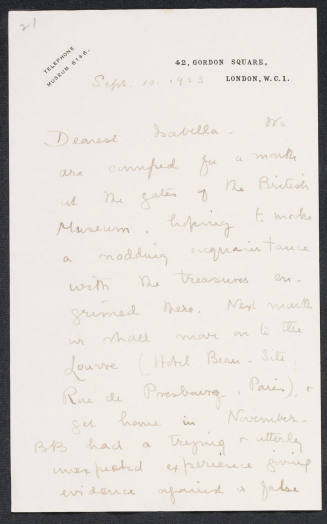 21
TELEPHONE
MUSEUM 8146.
42, GORDON SQUARE,
LONDON, W.C.1.
Sept. 10. 1923
Dearest Isabella - We
are camped for a month
at the gates of the British
Museum, hoping to make
a nodding acquaintance
with the treasures en-
shrined there. Next month
we shall move on to the
Louvre (Hotel Beau-Site,
Rue de Presbourg, Paris), &
get home in November.
BB had a trying & utterly
unexpected experience giving
evidence against a false